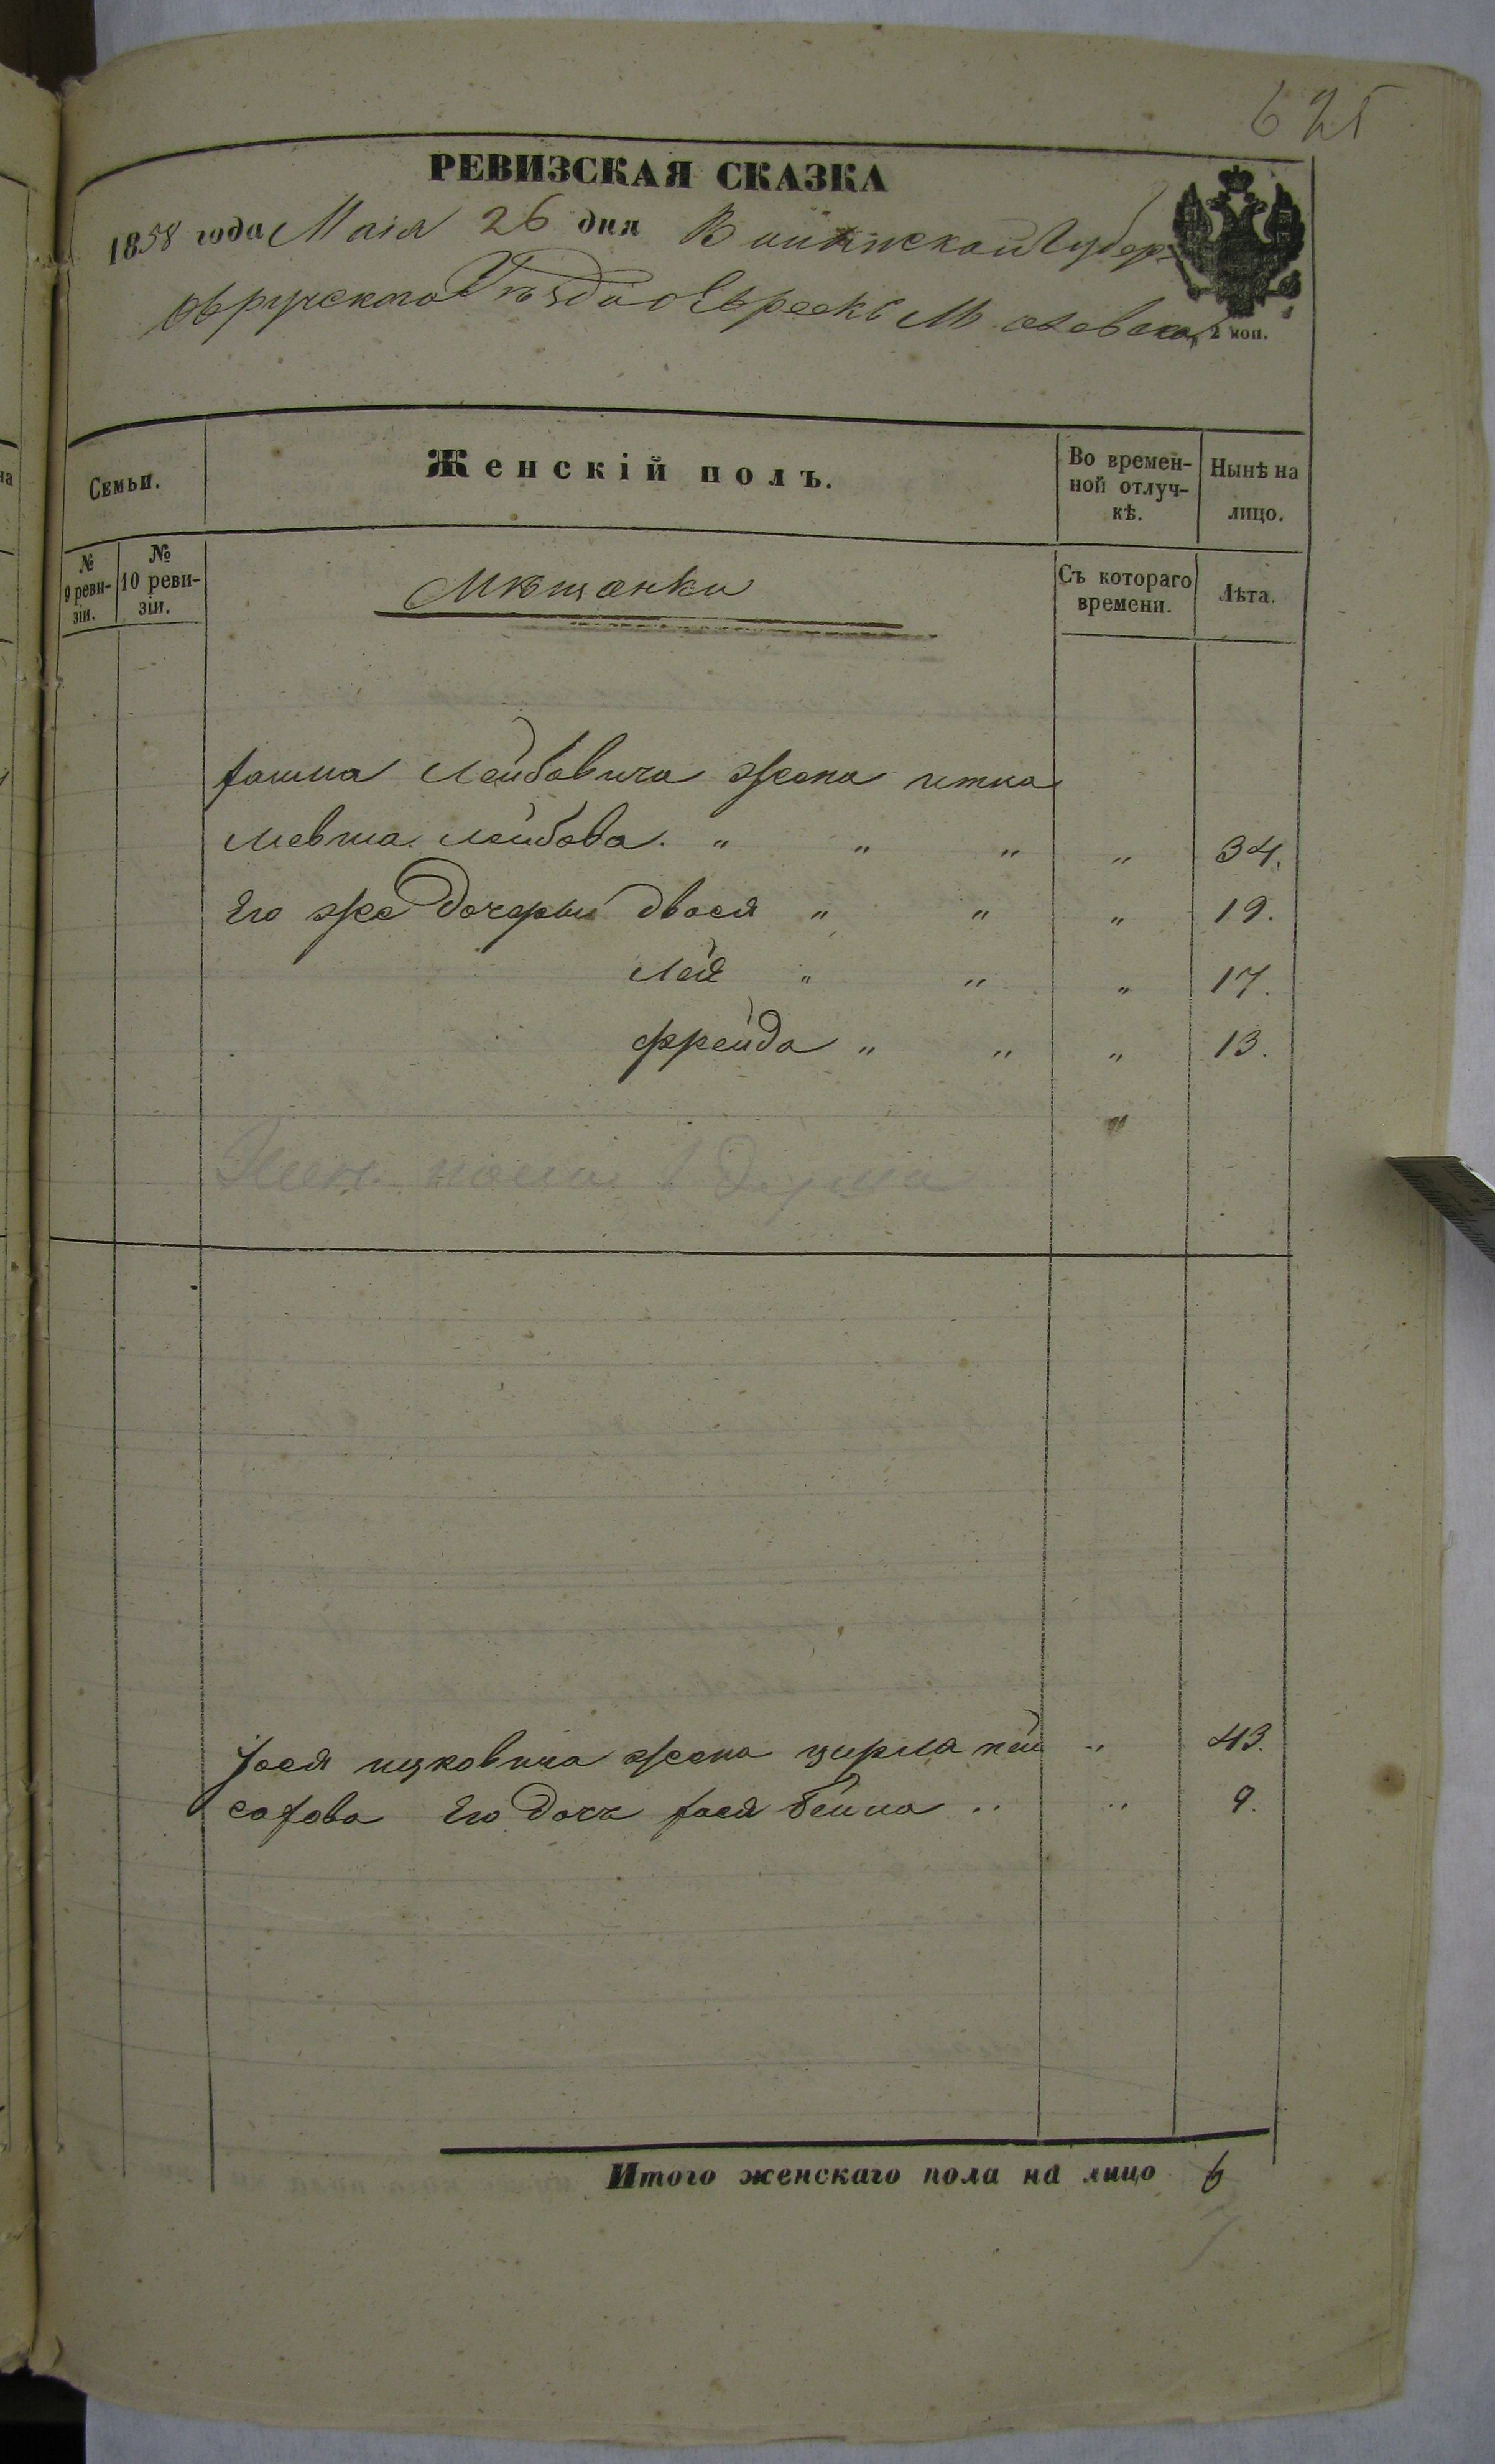 625
РЕВИЗСКАЯ СКАЗКА
1858 года Маія 26 дня Волынской Губер
Овручскаго Уѣзда о Евреяхъ М
2 коп.
Семьи.
Женскій полъ.
Во времен-
ной отлуч-
кѣ.
Нынѣ на
лицо.
№
9 реви-
зіи.
№
10 реви-
зіи.
Мѣщанки
Съ котораго
времени.
Лѣта.
Лейбовича жена итка
мевша лейбова „ „ „ „ 34.
Его же дочери двося „ „ „ 19.
лея „ „ „ 17.
фрейда „ „ „ 13.
„
Жен. пола душа
Іося ицковича жена цирла пей „ 43.
сахова Его дочь хася бейна „ „ 9.
Итого женскаго пола на лицо 6